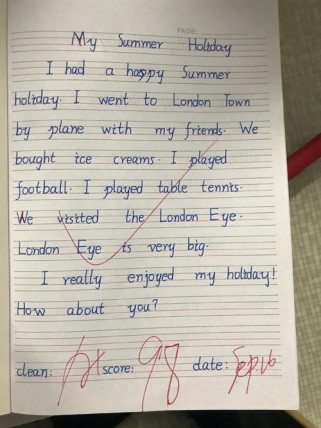 PAGE:
My Summer Holiday
I had a happy Summer
holiday. I went to London Town
by plane with my friends. We
bought ice creams. I played
football. I played table tennis.
We visited the London Eye.
London Eye is very big.
I really enjoyed my holiday!
How about you?
clean: A+ score: 98 date: Sep.